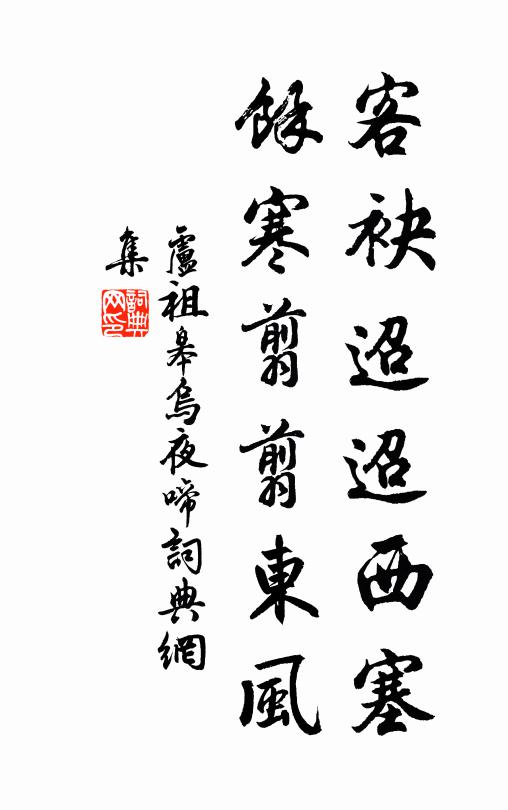 客袂迢迢西塞
餘寒翦翦東風
盧祖皋烏夜啼詞典網
集
詞典
网印